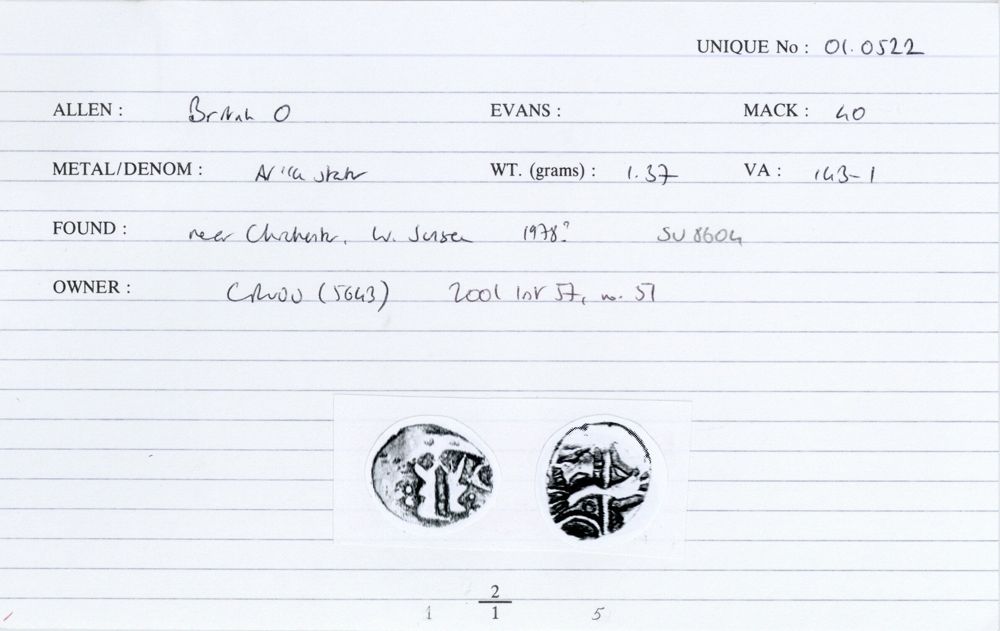 UNIQUE No : 01.0522
ALLEN : British O EVANS : MACK : 40
METAL/DENOM : AV 1/4 stater WT. (grams) : 1.37 VA : 143-1
FOUND : near Chichester, W. Sussex 1978? SU 8604
OWNER : (5643) 2001 list 57, no. 51
2
1 1 5